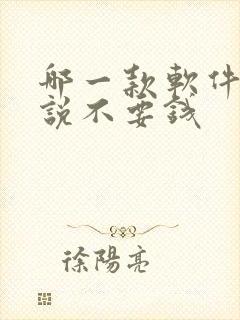 哪一款軟件
說不要錢
徐陽亮